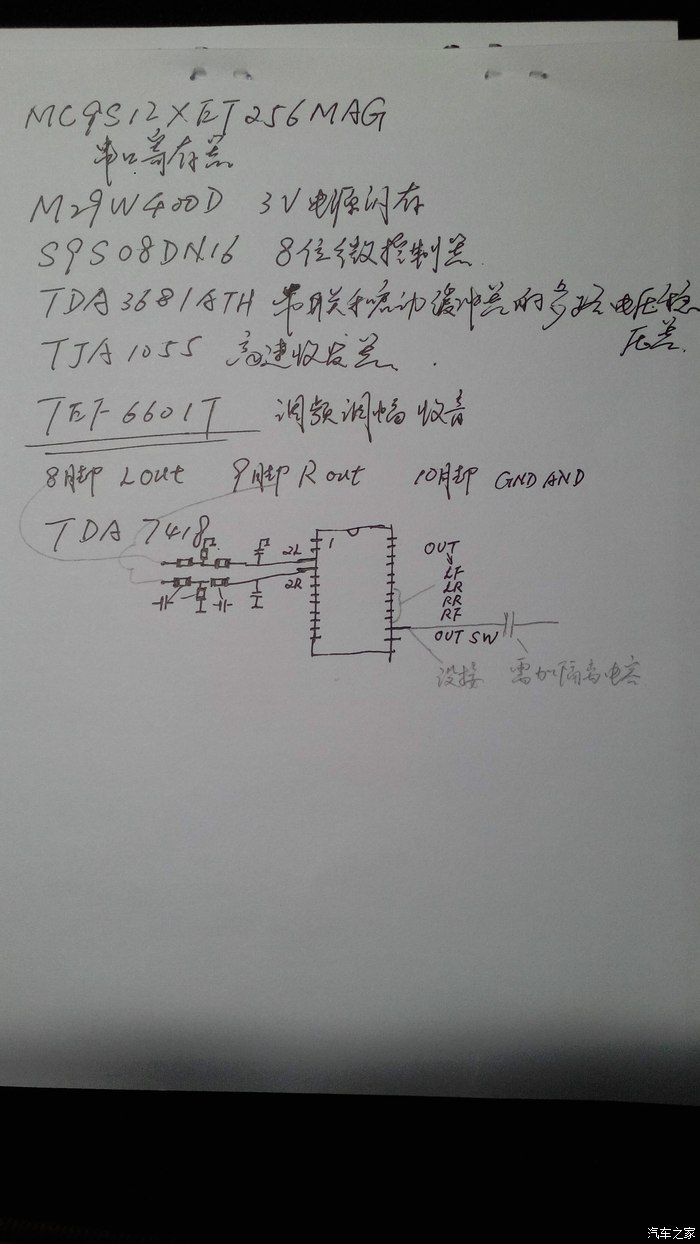 MC9S12XET256MAG
串口寄存器
M29W400D 3V电源闪存
S9S08DN16 8位微控制器
TDA3681ATH 串联和启动缓冲器的多路电压稳
压器
TJA1055 高速收发器
TEF6601T 调频调幅收音
8脚 LOut 9脚 Rout 10脚 GND AND
TDA7418
1
2L
2R
OUT
LF
LR
RR
RF
OUT SW
没接 需加隔离电容
汽车之家